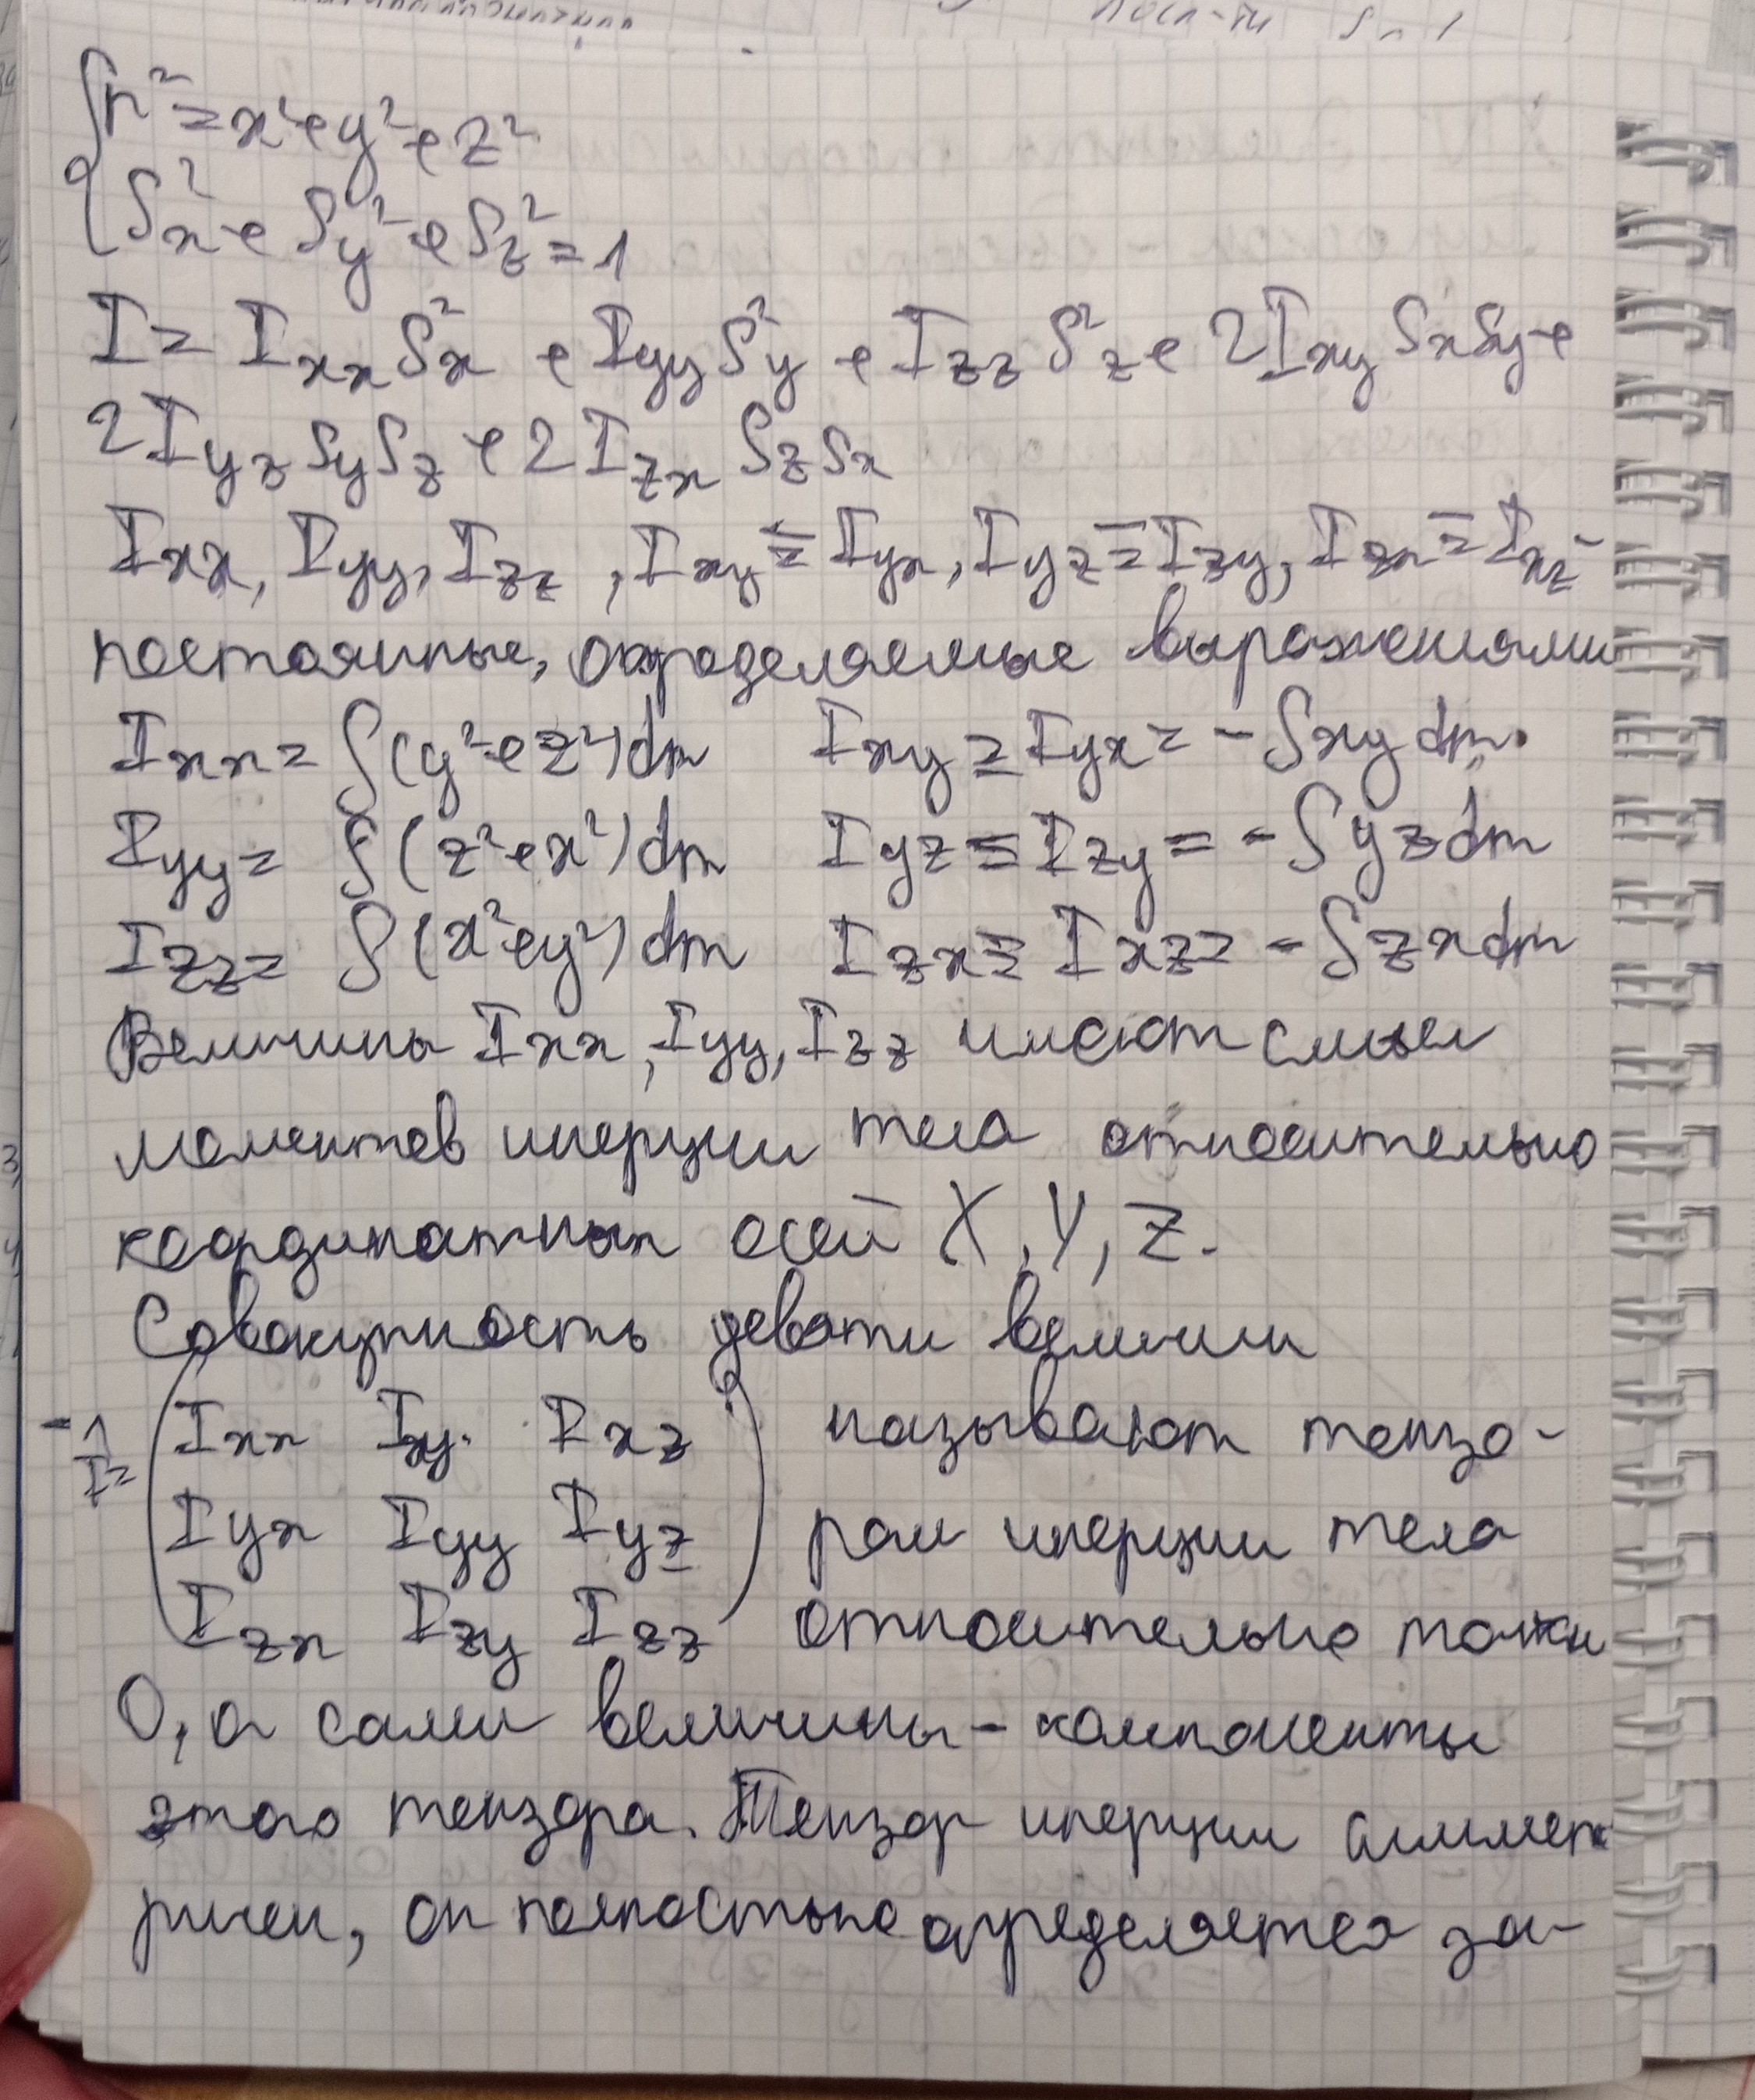 r² = x² + y² + z²
Sx² + Sy² + Sz² = 1
I = Ixx Sx² + Iyy Sy² + Izz Sz² + 2Ixy SxSy +
2Iyz SySz + 2Izx SzSx
Ixx, Iyy, Izz, Ixy = Iyx, Iyz = Izy, Izx = Ixz -
постоянные, определяемые выражениями
Ixx = ∫(y² + z²)dm Ixy = Iyx = -∫xy dm
Iyy = ∫(z² + x²)dm Iyz = Izy = -∫yz dm
Izz = ∫(x² + y²)dm Izx = Ixz = -∫zx dm
Величины Ixx, Iyy, Izz имеют смысл
моментов инерции тела относительно
координатных осей X, Y, Z.
Совокупность девяти величин
Î = (Ixx Ixy Ixz называют тензо-
Iyx Iyy Iyz ром инерции тела
Izx Izy Izz) относительно точки
О, а сами величины - компоненты
этого тензора. Тензор инерции симмет
ричен, он полностью определяется за-